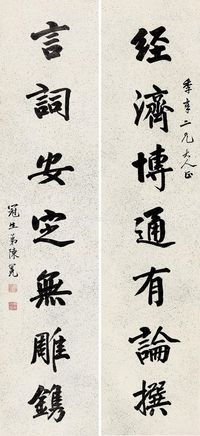 季二兄大人正
經濟博通有論撰
言詞安定無雕鐫
冠生弟陳冕